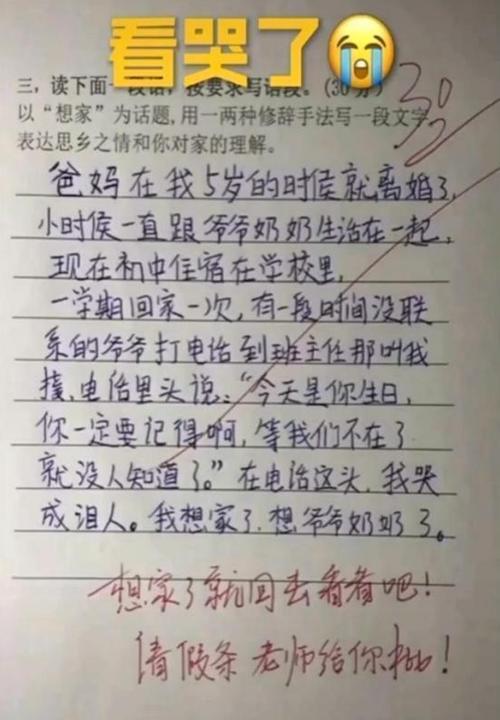 看哭了
三，读下面一段话，按要求写话段。(30分)
30
以“想家”为话题,用一两种修辞手法写一段文字,
表达思乡之情和你对家的理解。
爸妈在我5岁的时候就离婚了,
小时候一直跟爷爷奶奶生活在一起,
现在初中住宿在学校里,
一学期回家一次,有一段时间没联
系的爷爷打电话到班主任那叫我
接,电话里头说:“今天是你生日,
你一定要记得啊,等我们不在了
就没人知道了。”在电话这头,我哭
成泪人。我想家了,想爷爷奶奶了。
想家了就回去看看吧!
请假条 老师给你批!